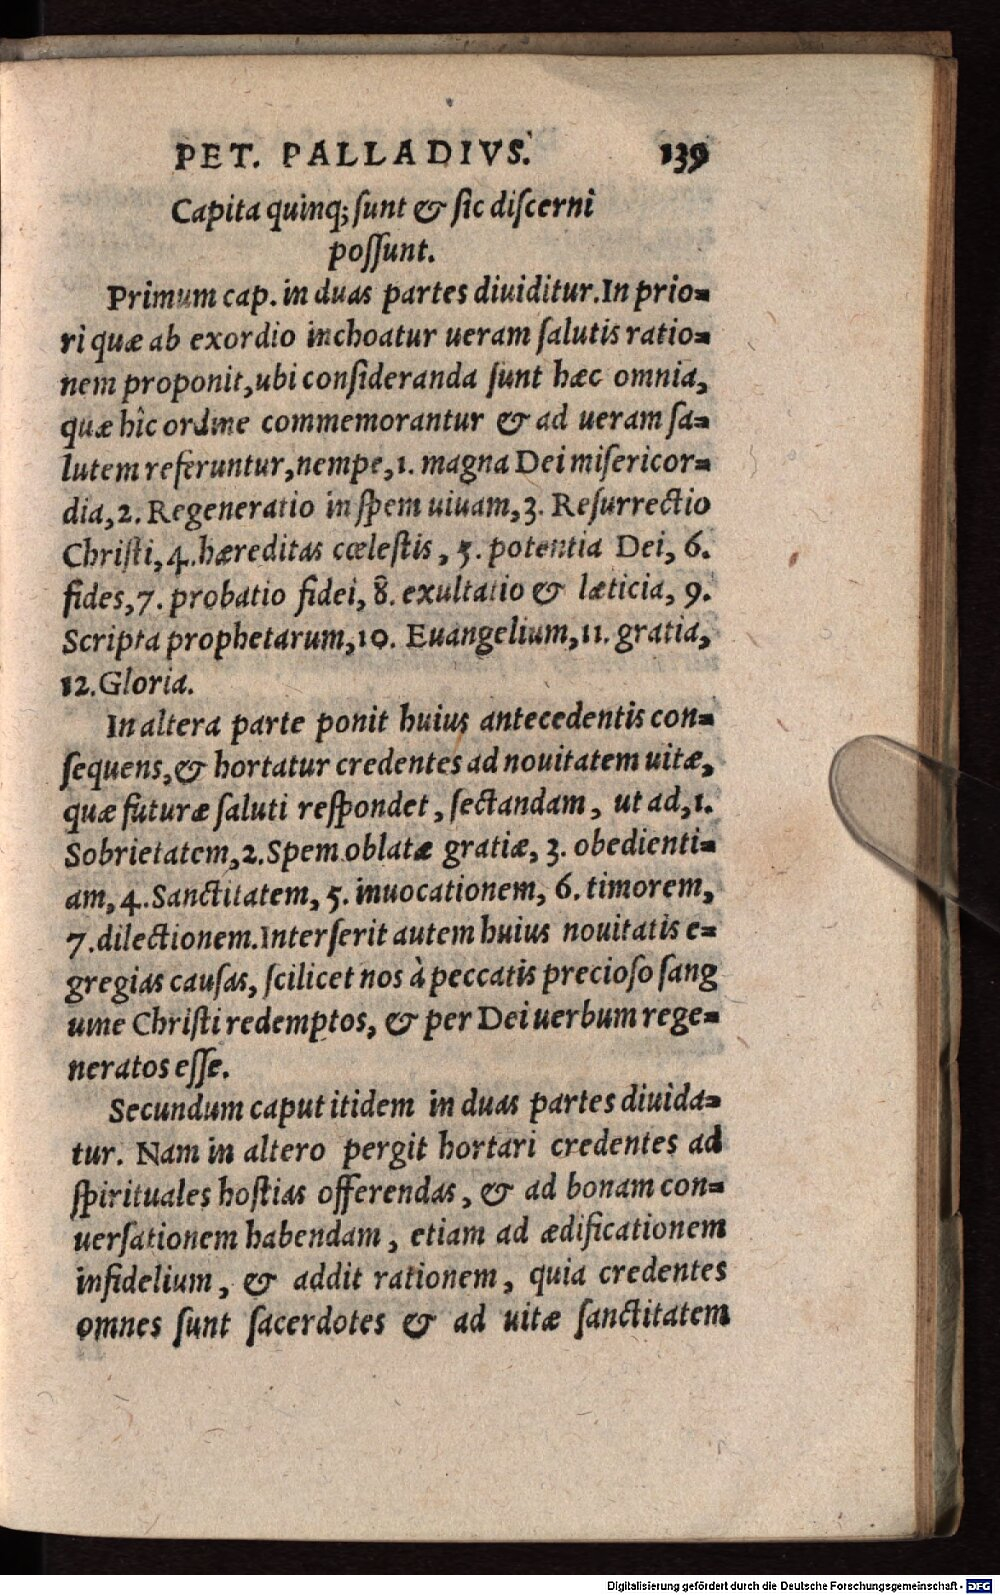 PET. PALLADIVS. 139
Capita quinq; ſunt & ſic diſcerni
poſſunt.
Primum cap. in duas partes diuiditur. In prio=
ri quæ ab exordio inchoatur ueram ſalutis ratio=
nem proponit, ubi conſideranda ſunt hæc omnia,
quæ hîc ordine commemorantur & ad ueram ſa=
lutem referuntur, nempe, 1. magna Dei miſericor=
dia, 2. Regeneratio in ſpem uiuam, 3. Reſurrectio
Chriſti, 4. hæreditas cœleſtis, 5. potentia Dei, 6.
fides, 7. probatio fidei, 8. exultatio & læticia, 9.
Scripta prophetarum, 10. Euangelium, 11. gratia,
12. Gloria.
In altera parte ponit huius antecedentis con=
ſequens, & hortatur credentes ad nouitatem uitæ,
quæ futuræ ſaluti reſpondet, ſectandam, ut ad, 1.
Sobrietatem, 2. Spem oblatæ gratiæ, 3. obedienti=
am, 4. Sanctitatem, 5. inuocationem, 6. timorem,
7. dilectionem. Interſerit autem huius nouitatis e=
gregias cauſas, ſcilicet nos à peccatis precioſo ſang
uine Chriſti redemptos, & per Dei uerbum rege=
neratos eſſe.
Secundum caput itidem in duas partes diuida=
tur. Nam in altero pergit hortari credentes ad
ſpirituales hoſtias offerendas, & ad bonam con=
uerſationem habendam, etiam ad ædificationem
infidelium, & addit rationem, quia credentes
omnes ſunt ſacerdotes & ad uitæ ſanctitatem
Digitalisierung gefördert durch die Deutsche Forschungsgemeinschaft - DFG